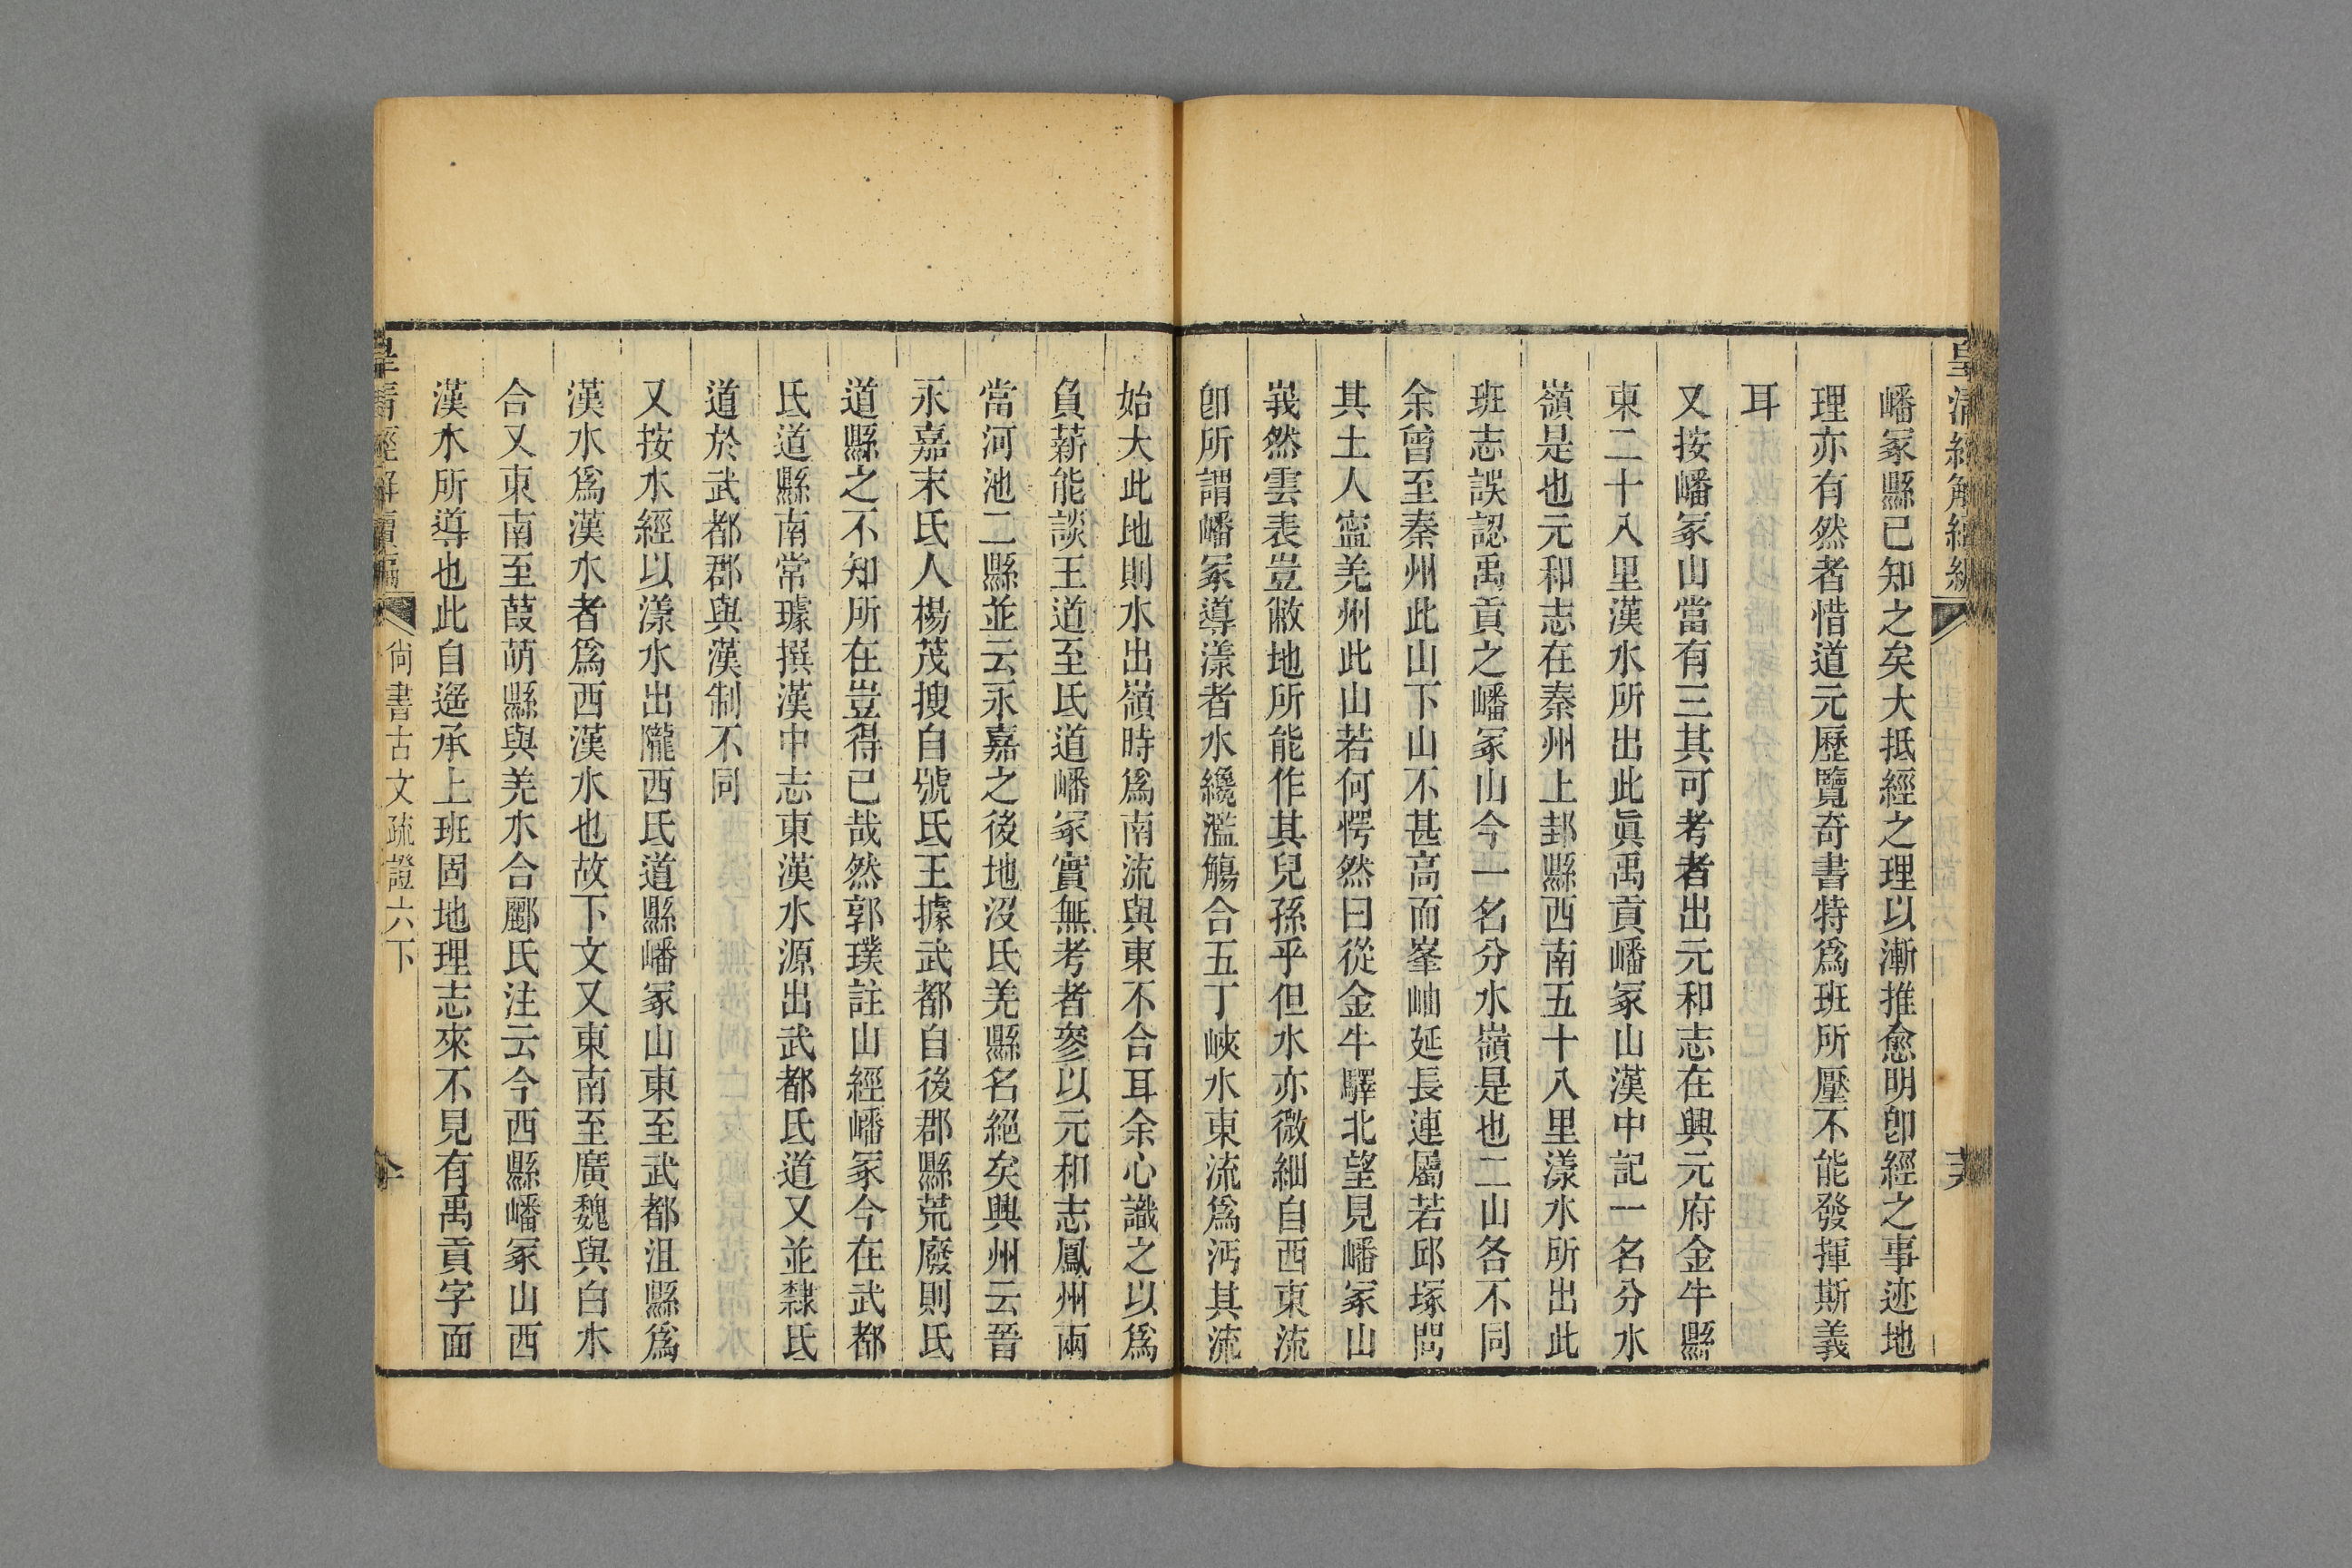 嶓冢縣已知之矣大抵經之理以漸推愈明卽經之事迹地
理亦有然者惜道元歷覽奇書特爲班所壓不能發揮斯義
耳
又按嶓冢山當有三其可考者出元和志在興元府金牛縣
東二十八里漢水所出此眞禹貢嶓冢山漢中記一名分水
嶺是也元和志在秦州上邽縣西南五十八里漾水所出此
班志誤認禹貢之嶓冢山今一名分水嶺是也二山各不同
余曾至秦州此山下山不甚高而峯岫延長連屬若邱塚問
其土人寍羌州此山若何愕然曰從金牛驛北望見嶓冢山
峩然雲表豈敝地所能作其兒孫乎但水亦微細自西東流
卽所謂嶓冢導漾者水纔濫觴合五丁峽水東流爲沔其流
始大此地則水出嶺時爲南流與東不合耳余心識之以爲
負薪能談王道至氐道嶓冢實無考者參以元和志鳳州兩
當河池二縣並云永嘉之後地沒氐羌縣名絕矣興州云晉
永嘉末氐人楊茂搜自號氐王據武都自後郡縣荒廢則氐
道縣之不知所在豈得已哉然郭璞註山經嶓冢今在武都
氐道縣南常璩撰漢中志東漢水源出武都氐道又並隸氐
道於武都郡與漢制不同
又按水經以漾水出隴西氐道縣嶓冢山東至武都沮縣爲
漢水爲漢水者爲西漢水也故下文又東南至廣魏與白水
合又東南至葭萌縣與羌水合酈氏注云今西縣嶓冢山西
漢水所導也此自遙承上班固地理志來不見有禹貢字面
皇清經解續編
尙書古文疏證六下